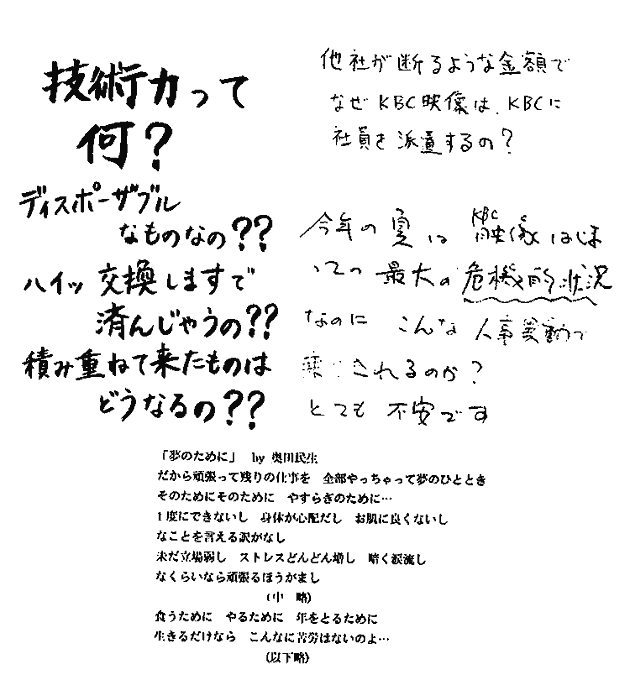 技術力って
何?
ディスポーザブル
なものなの??
ハイッ 交換しますで
済んじゃうの??
積み重ねて来たものは
どうなるの??
他社が断るような金額で
なぜKBC映像は、KBCに
社員を派遣するの?
今年の夏は KBC映像はじま
っての 最大の危機的状況
なのに こんな 人事異動で
されるのか?
とても 不安です
「夢のために」 by 奥田民生
だから頑張って残りの仕事を 全部やっちゃって夢のひととき
そのためにそのために やすらぎのために…
1度にできないし 身体が心配だし お肌に良くないし
なことを言える訳がなし
未だ立場弱し ストレスどんどん増し 暗く涙流し
なくらいなら頑張るほうがまし
(中 略)
食うために やるために 年をとるために
生きるだけなら こんなに苦労はないのよ…
(以下略)